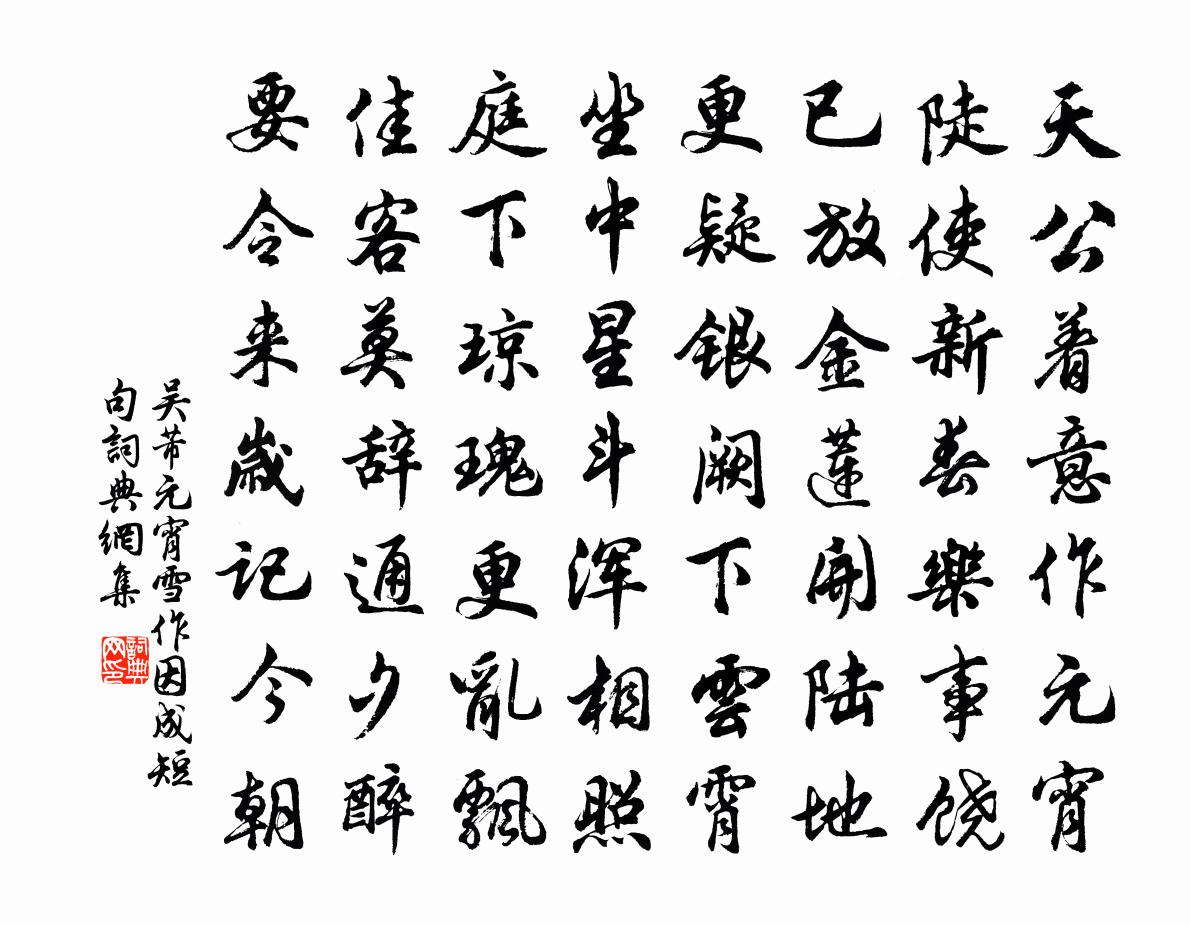 天公着意作元宵
陡使新春樂事饶
已放金蓮開陆地
更疑銀阙下雲霄
坐中星斗浑相照
庭下琼瑰更亂飄
佳客莫辞通夕醉
要令来歳记今朝
吴芾元宵雪作因成短
句詞典網集
詞典网印